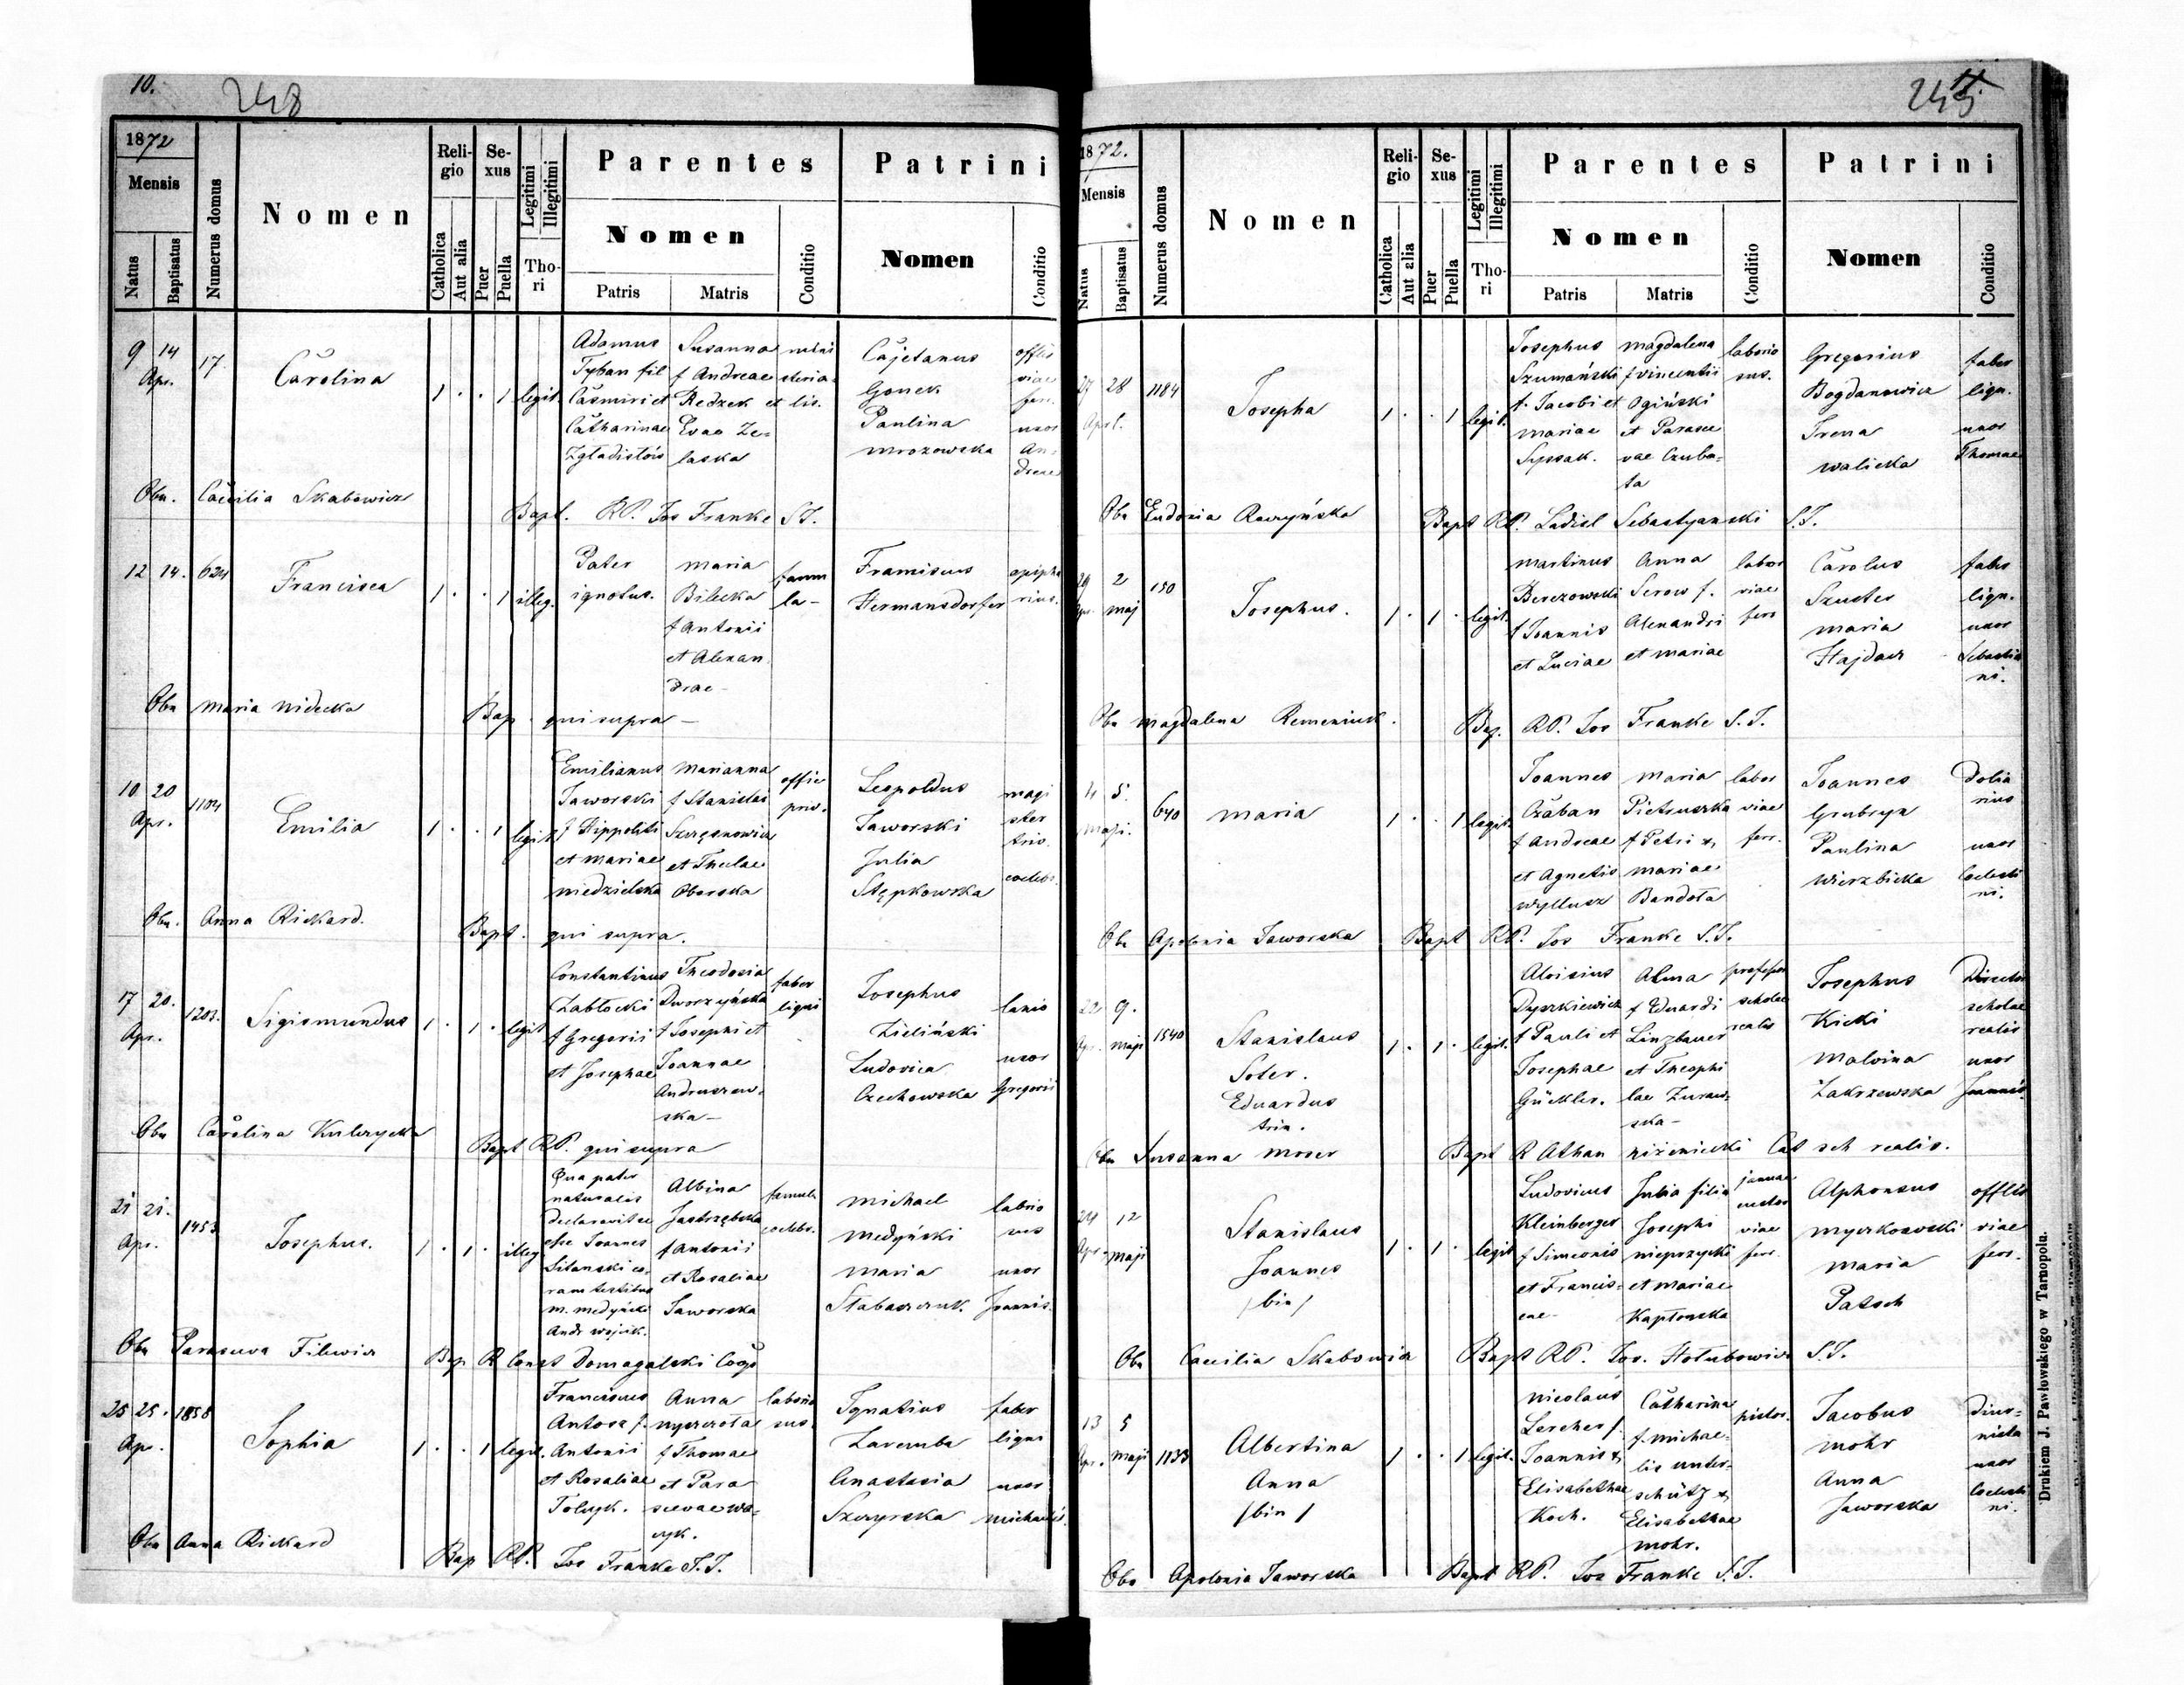 10.
248
1872
Mensis
Natus
Baptisatus
Numerus domus
Nomen
Religio
Catholica
Aut alia
Sexus
Puer
Puella
Legitimi
Illegitimi
Thori
Parentes
Nomen
Patris
Matris
Conditio
Patrini
Nomen
Conditio
9 14
Apr.
17.
Carolina
1 . . 1 legit.
Adamus
Tyban fil
Casmiri et
Catharinae
Susanna
f Andreae
Redzek et
Evae Ze=
laska
Cajetanus
Gonek
Paulina
Mrozowska
offlis
viae
ferr.
uxor
An=
dreae
Obs. Caecilia Skabowicz
Bapt. RP. Jos Franke S.J.
12 14. 624
Francisca
1 . . 1 illeg.
Pater
ignotus.
Maria
Bilecka
f Antonii
et Alexan
drae
famu
la
Hermansdorfer
Obs Maria Nidecka
Bap. qui supra
10 20
Apr.
1104
Emilia
1 . . 1 legit
Emilianus
Jaworski
f Hippoliti
et Mariae
Niedzielska
Marianna
f Stanislai
et Theclae
Oborska
offic
priv.
Leopoldus
Jaworski
Julia
Stępkowska
magi
ster
coelebs.
Obs. Anna Rickard.
Bapt. qui supra.
17 20.
Apr.
1203.
Sigismundus
1 . 1 . legit
Constantinus
Zabłocki
f Gregorii
et Josephae
Theodosia
Dworzyńska
f Josephi et
Joannae
Andruszew=
ska
faber
ligni
Josephus
Zieliński
Ludovica
Czechowska
lanio
uxor
Gregorii
Obs Carolina Kulczycka
Bapt RP. qui supra
21 21.
Apr.
1453
Josephus.
1 . 1 . illeg
Qua pater
naturalis
declaravit se
esse Joannes
co=
ram testibus
M. Medyński
Andr Wojcik.
Albina
Jastrzębska
f Antonii
et Rosaliae
Jaworska
famula
coelebs.
Michael
Medyński
Maria
Stabaszczuk
labrio
sus
uxor
Joannis.
Obs Parasceva Filewicz
Bap R Const Domagalski Coop
25 25.
Ap.
1858
Sophia
1 . . 1 legit.
Franciscus
Antosz f.
Antonii
et Rosaliae
Tołuyk.
Anna
f Thomae
et Para
scevae Wa=
cyk.
laborio
sus.
Ignatius
Zaremba
Anastasia
Szczyrska
faber
ligni
uxor
Michaelis.
Obs Anna Rickard
Bap RP. Jos Franke S.J.
11.
249
1872.
Mensis
Natus
Baptisatus
Numerus domus
Nomen
Religio
Catholica
Aut alia
Sexus
Puer
Puella
Legitimi
Illegitimi
Thori
Parentes
Nomen
Patris
Matris
Conditio
Patrini
Nomen
Conditio
27 28
April.
1184
Josepha
1 . . 1 legit.
Josephus
Szumański
f. Jacobi et
Mariae
Syssak.
Magdalena
f Vincentii
Ogiński
et Parasce
vae Czuba=
ta
laborio
sus.
Gregorius
Bogdanowicz
Irena
Walicka
faber
lign.
uxor
Thomae
Obs Eudoxia Raczyńska
Bapt RP. Ladisl Sebastyanski S.J.
29 2
Apr. Maj
150
Josephus.
1 . 1 . legit.
Martinus
Berezowski
f Joannis
et Luciae
Anna
Serow f.
Alexandri
et Mariae
labor
viae
ferr
Carolus
Szustes
Maria
Hajdacz
faber
lign.
uxor
Sebastia
ni.
Obs Magdalena Remeniuk.
Bap. RP. Jos Franke S.J.
4 5.
Maji.
640
Maria
1 . . 1 legit.
Joannes
Czaban
f Andreae
et Agnetis
Wyllusz
Maria
Pietruszka
f Petri &
Mariae
Bandota
labor
viae
ferr.
Joannes
Grubryn
Paulina
Wierzbicka
Dolia
rius
uxor
Coelesti
ni.
Obs Apolonia Jaworska
Bapt RP. Jos Franke S.J.
22 9.
Apr. Maji
1540
Stanislaus
Soter.
Eduardus
trin.
1 . 1 . legit.
Aloisius
Dyszkiewicz
f Pauli et
Josephae
Gückler.
Alma
f Eduardi
Linzbauer
et Theophi
lae Zuraw=
ska
professor
scholae
realis
Josephus
Kicki
Malvina
Zakrzewska
Director
scholae
realis
uxor
Joannis.
Obs Susanna Moser
Bapt R Athan Cat sch realis.
24 12
Apr. Maji
Stanislaus
Joannes
/bin/
1 . 1 . legit
Ludovicus
Kleinberger
f Simeonis
et Francis=
cae
Julia filia
Josephi
Nieprzycki
et Mariae
Kaptonska
januae
custos
viae
ferr.
Alphonsus
Myczkowski
Maria
Patsch
offlis
viae
ferr.
Obs Caecilia Skabowicz
Bapt RP. Jos. Hołubowicz S.J.
13 5
Apr. Maji
1133
Albertina
Anna
/bin/
1 . . 1 legit.
Nicolaus
Lercher f.
Joannis &
Elisabethae
Koch.
Catharina
f. Michae=
lis Unter=
schütz &
Elisabethae
Mohr.
pistor.
Jacobus
Mohr
Anna
Jaworska
Diur=
nista
uxor
Coelesti
ni.
Obs Apolonia Jaworska
Bapt RP. Jos Franke S.J.
Drukiem J. Pawłowskiego w Tarnopolu.